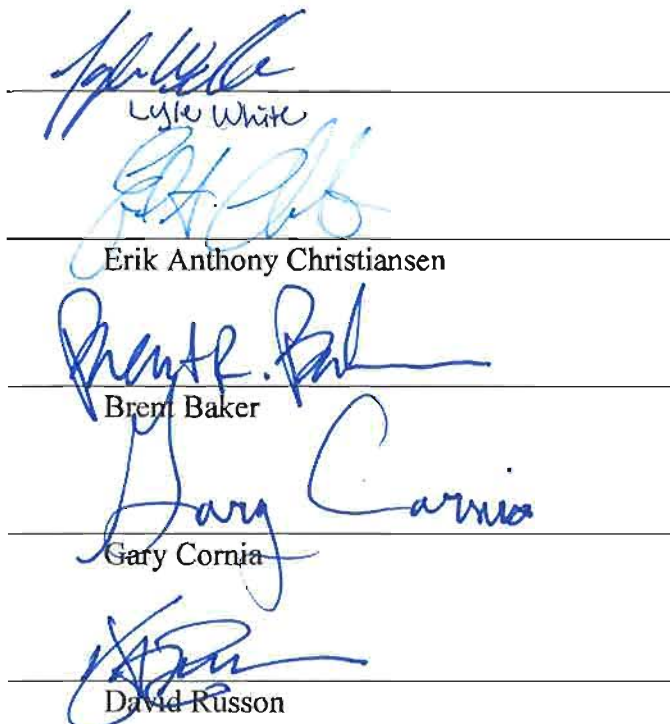 Lyle White
Erik Anthony Christiansen
Brent R. Baker
Brent Baker
Gary Cornia
Gary Cornia
David Russon